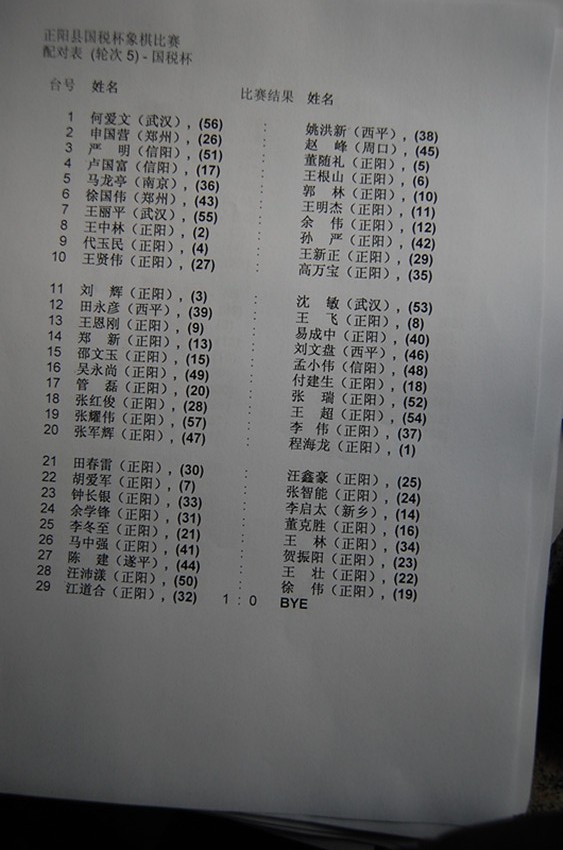 正阳县国税杯象棋比赛
配对表 (轮次 5) - 国税杯
台号 姓名 比赛结果 姓名
1 何爱文（武汉）, (56) : 姚洪新（西平）, (38)
2 申国营（郑州）, (26) : 赵 峰（周口）, (45)
3 严 明（信阳）, (51) : 董随礼（正阳）, (5)
4 卢国富（信阳）, (17) : 王根山（正阳）, (6)
5 马龙亭（南京）, (36) : 郭 林（正阳）, (10)
6 徐国伟（郑州）, (43) : 王明杰（正阳）, (11)
7 王丽平（武汉）, (55) : 余 伟（正阳）, (12)
8 王中林（正阳）, (2) : 孙 严（正阳）, (42)
9 代玉民（正阳）, (4) : 王新正（正阳）, (29)
10 王贤伟（正阳）, (27) : 高万宝（正阳）, (35)
11 刘 辉（正阳）, (3) : 沈 敏（武汉）, (53)
12 田永彦（西平）, (39) : 王 飞（正阳）, (8)
13 王恩刚（正阳）, (9) : 易成中（正阳）, (40)
14 郑 新（正阳）, (13) : 刘文盘（西平）, (46)
15 邵文玉（正阳）, (15) : 孟小伟（信阳）, (48)
16 吴永尚（正阳）, (49) : 付建生（正阳）, (18)
17 管 磊（正阳）, (20) : 张 瑞（正阳）, (52)
18 张红俊（正阳）, (28) : 王 超（正阳）, (54)
19 张耀伟（正阳）, (57) : 李 伟（正阳）, (37)
20 张军辉（正阳）, (47) : 程海龙（正阳）, (1)
21 田春雷（正阳）, (30) : 汪鑫豪（正阳）, (25)
22 胡爱军（正阳）, (7) : 张智能（正阳）, (24)
23 钟长银（正阳）, (33) : 李启太（新乡）, (14)
24 余学锋（正阳）, (31) : 董克胜（正阳）, (16)
25 李冬至（正阳）, (21) : 王 林（正阳）, (34)
26 马中强（正阳）, (41) : 贺振阳（正阳）, (23)
27 陈 建（遂平）, (44) : 王 壮（正阳）, (22)
28 汪沛漾（正阳）, (50) : 徐 伟（正阳）, (19)
29 江道合（正阳）, (32) 1 : 0 BYE